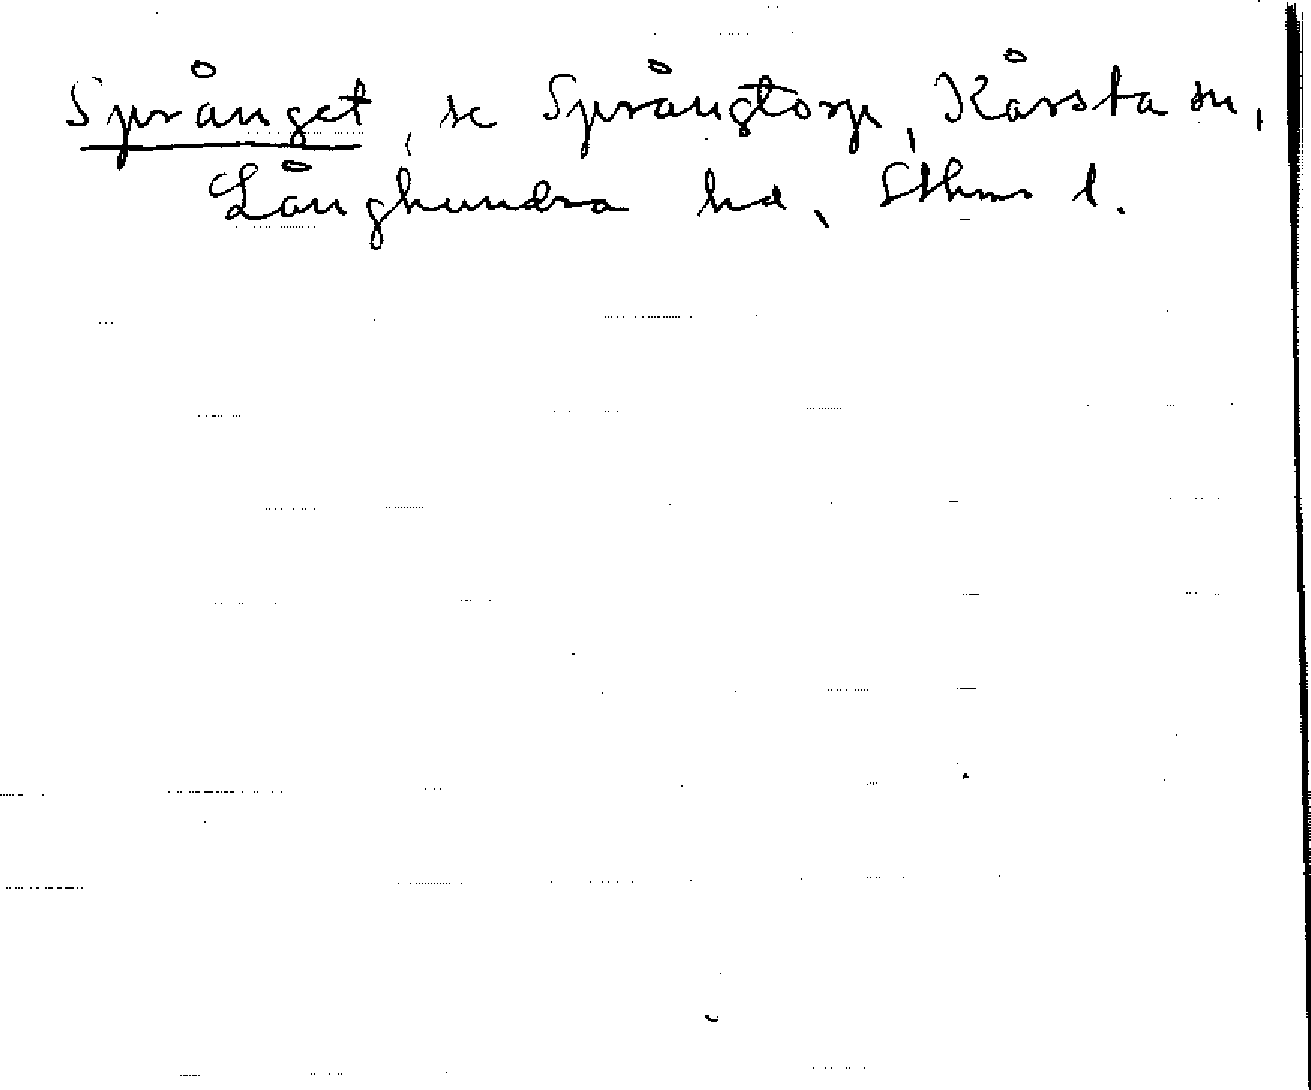 Språnget, se Språngtorp, Kårsta sn,
Långhundra hd, Sthms l.